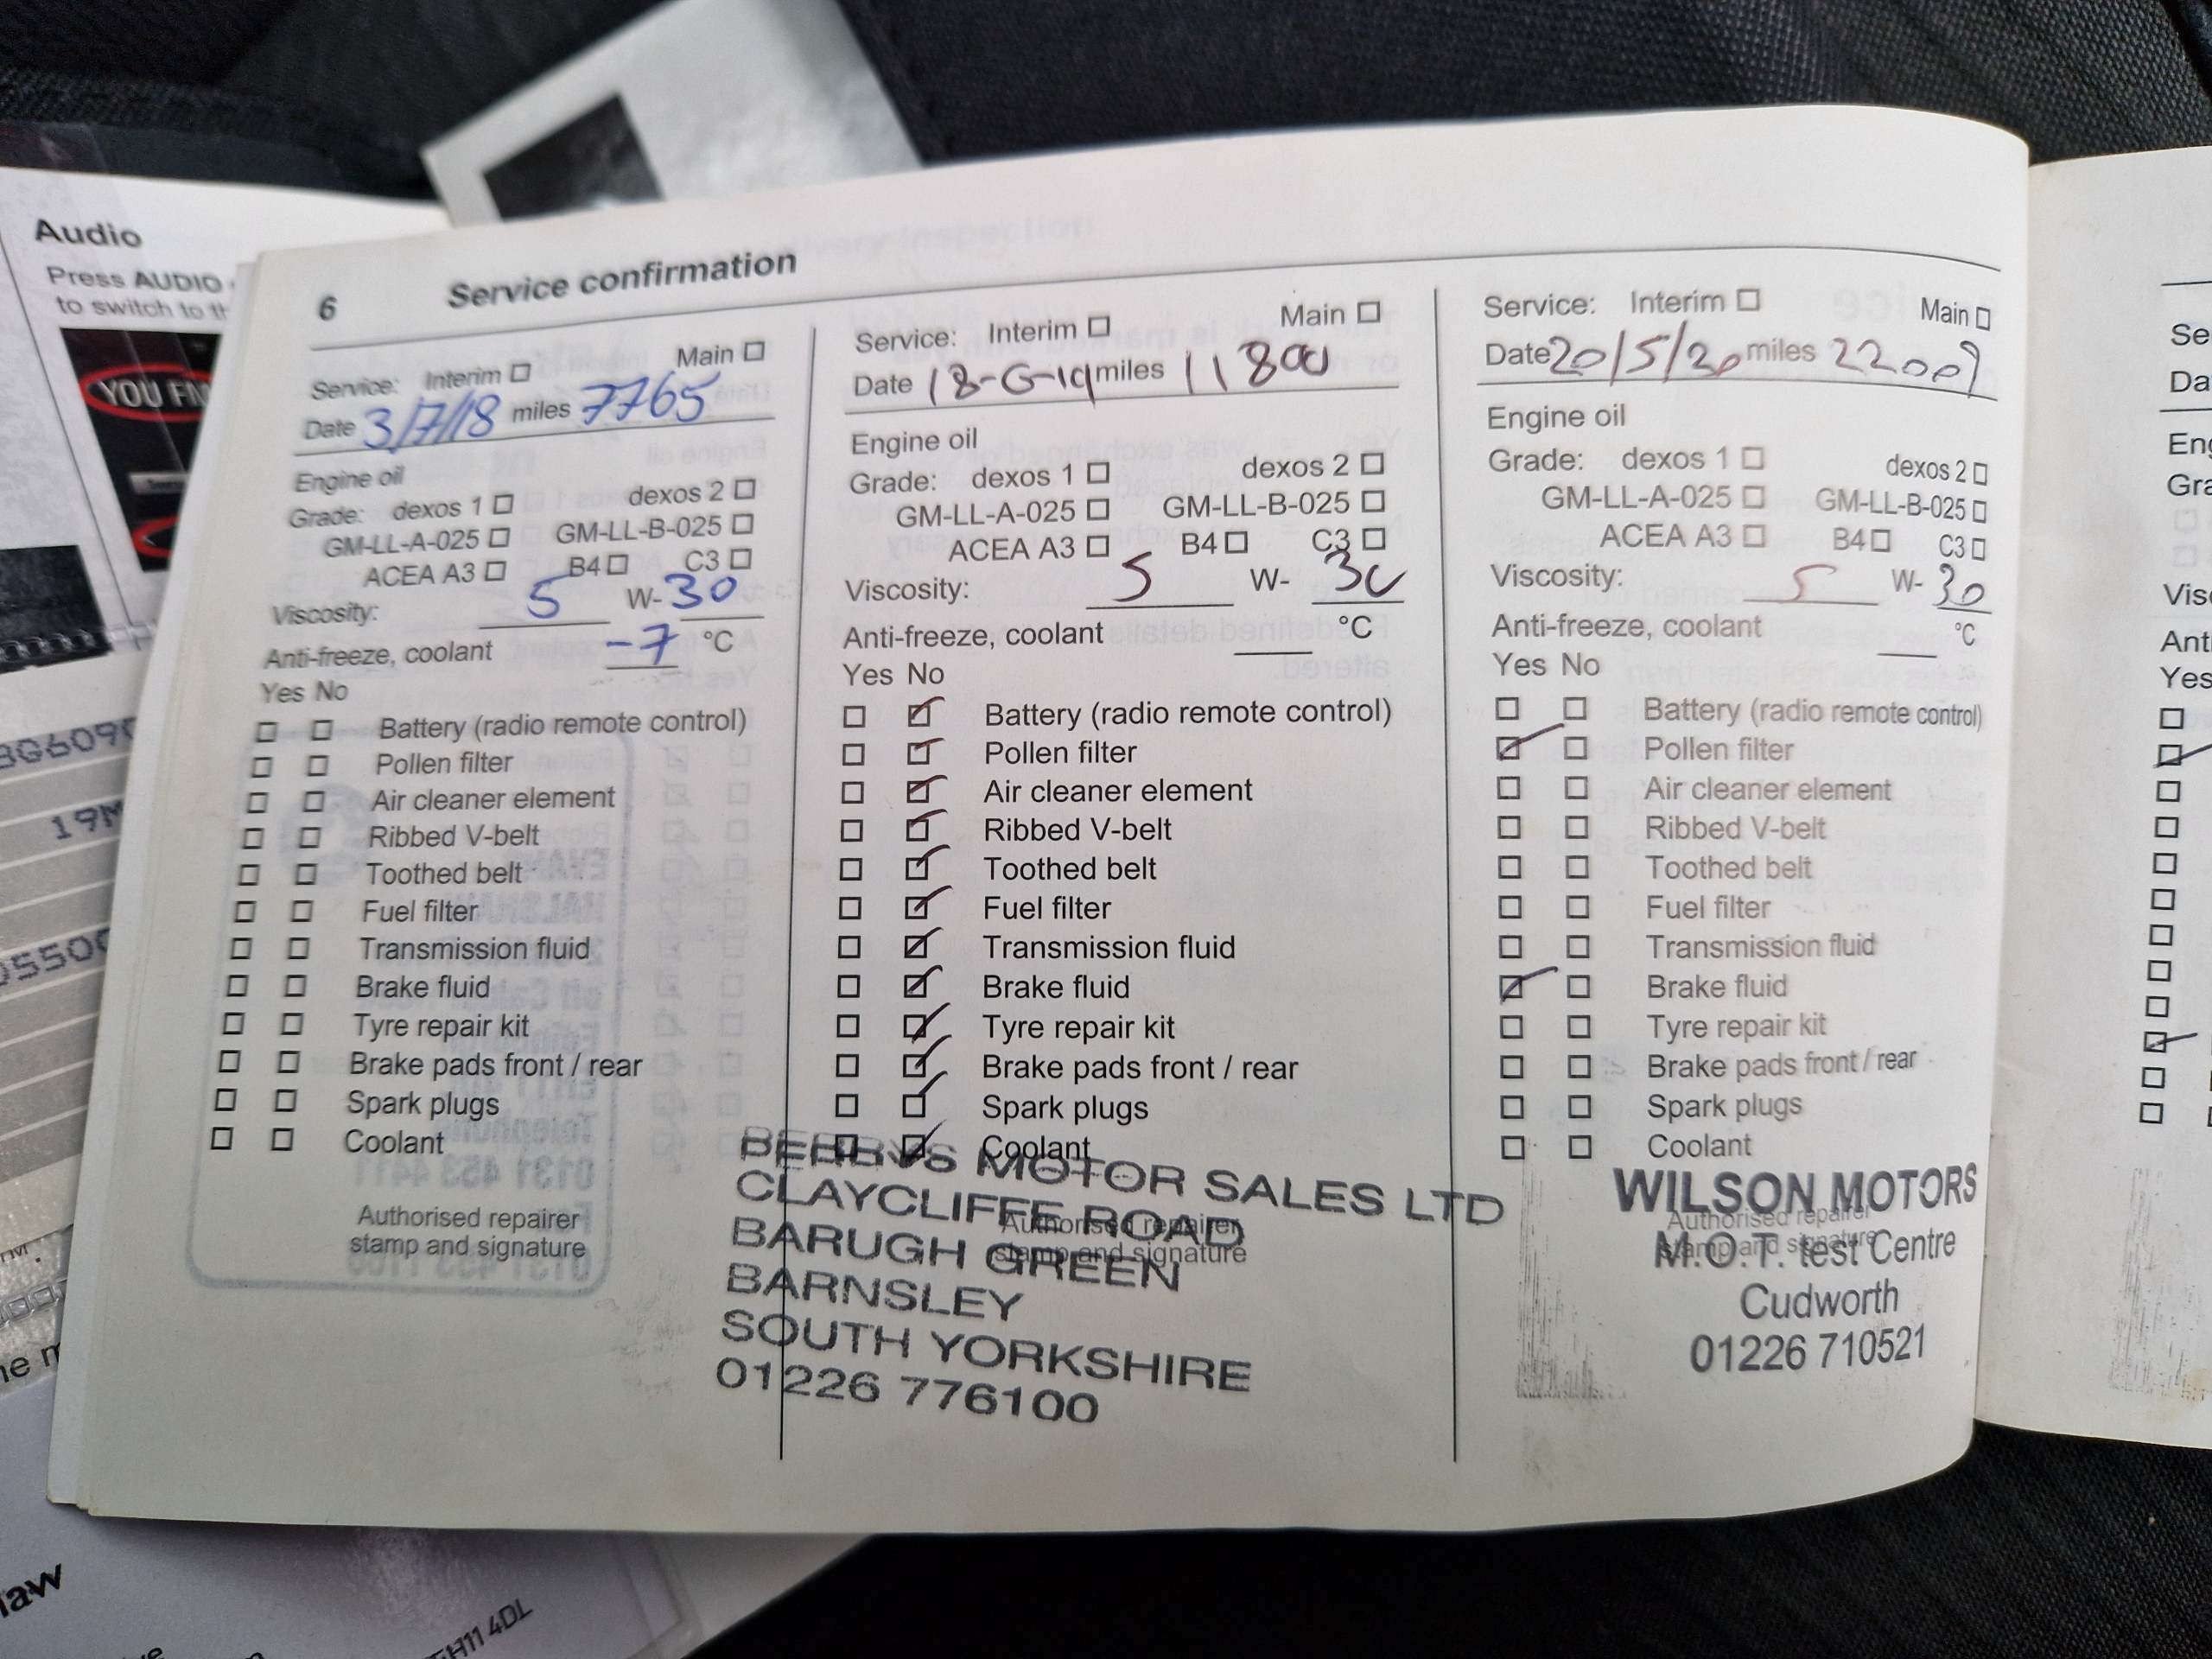 Audio
Press AUDIO
to switch to th
YOU
19M
law
EH11 4DL
6 Service confirmation
Service: Interim ☐ Main ☐
Date 3/7/18 miles 7765
Engine oil
Grade: dexos 1 ☐ dexos 2 ☐
GM-LL-A-025 ☐ GM-LL-B-025 ☐
ACEA A3 ☐ B4 ☐ C3 ☐
Viscosity: 5 W- 30
Anti-freeze, coolant -7 °C
Yes No
Battery (radio remote control)
Pollen filter
Air cleaner element
Ribbed V-belt
Toothed belt
Fuel filter
Transmission fluid
Brake fluid
Tyre repair kit
Brake pads front / rear
Spark plugs
Coolant
Authorised repairer
stamp and signature
Service: Interim ☐ Main ☐
Date 18-6-19 miles 11800
Engine oil
Grade: dexos 1 ☐ dexos 2 ☐
GM-LL-A-025 ☐ GM-LL-B-025 ☐
ACEA A3 ☐ B4 ☐ C3 ☐
Viscosity: 5 W- 30
Anti-freeze, coolant °C
Yes No
Battery (radio remote control)
Pollen filter
Air cleaner element
Ribbed V-belt
Toothed belt
Fuel filter
Transmission fluid
Brake fluid
Tyre repair kit
Brake pads front / rear
Spark plugs
Coolant
Authorised repairer
stamp and signature
MOTOR SALES LTD
CLAYCLIFFE ROAD
BARUGH GREEN
BARNSLEY
SOUTH YORKSHIRE
01226 776100
Service: Interim ☐ Main ☐
Date 20/5/20 miles 22009
Engine oil
Grade: dexos 1 ☐ dexos 2 ☐
GM-LL-A-025 ☐ GM-LL-B-025 ☐
ACEA A3 ☐ B4 ☐ C3 ☐
Viscosity: 5 W- 30
Anti-freeze, coolant °C
Yes No
Battery (radio remote control)
Pollen filter
Air cleaner element
Ribbed V-belt
Toothed belt
Fuel filter
Transmission fluid
Brake fluid
Tyre repair kit
Brake pads front / rear
Spark plugs
Coolant
Authorised repairer
stamp and signature
WILSON MOTORS
M.O.T. test Centre
Cudworth
01226 710521
Se
Da
Eng
Gra
Visc
Anti
Yes